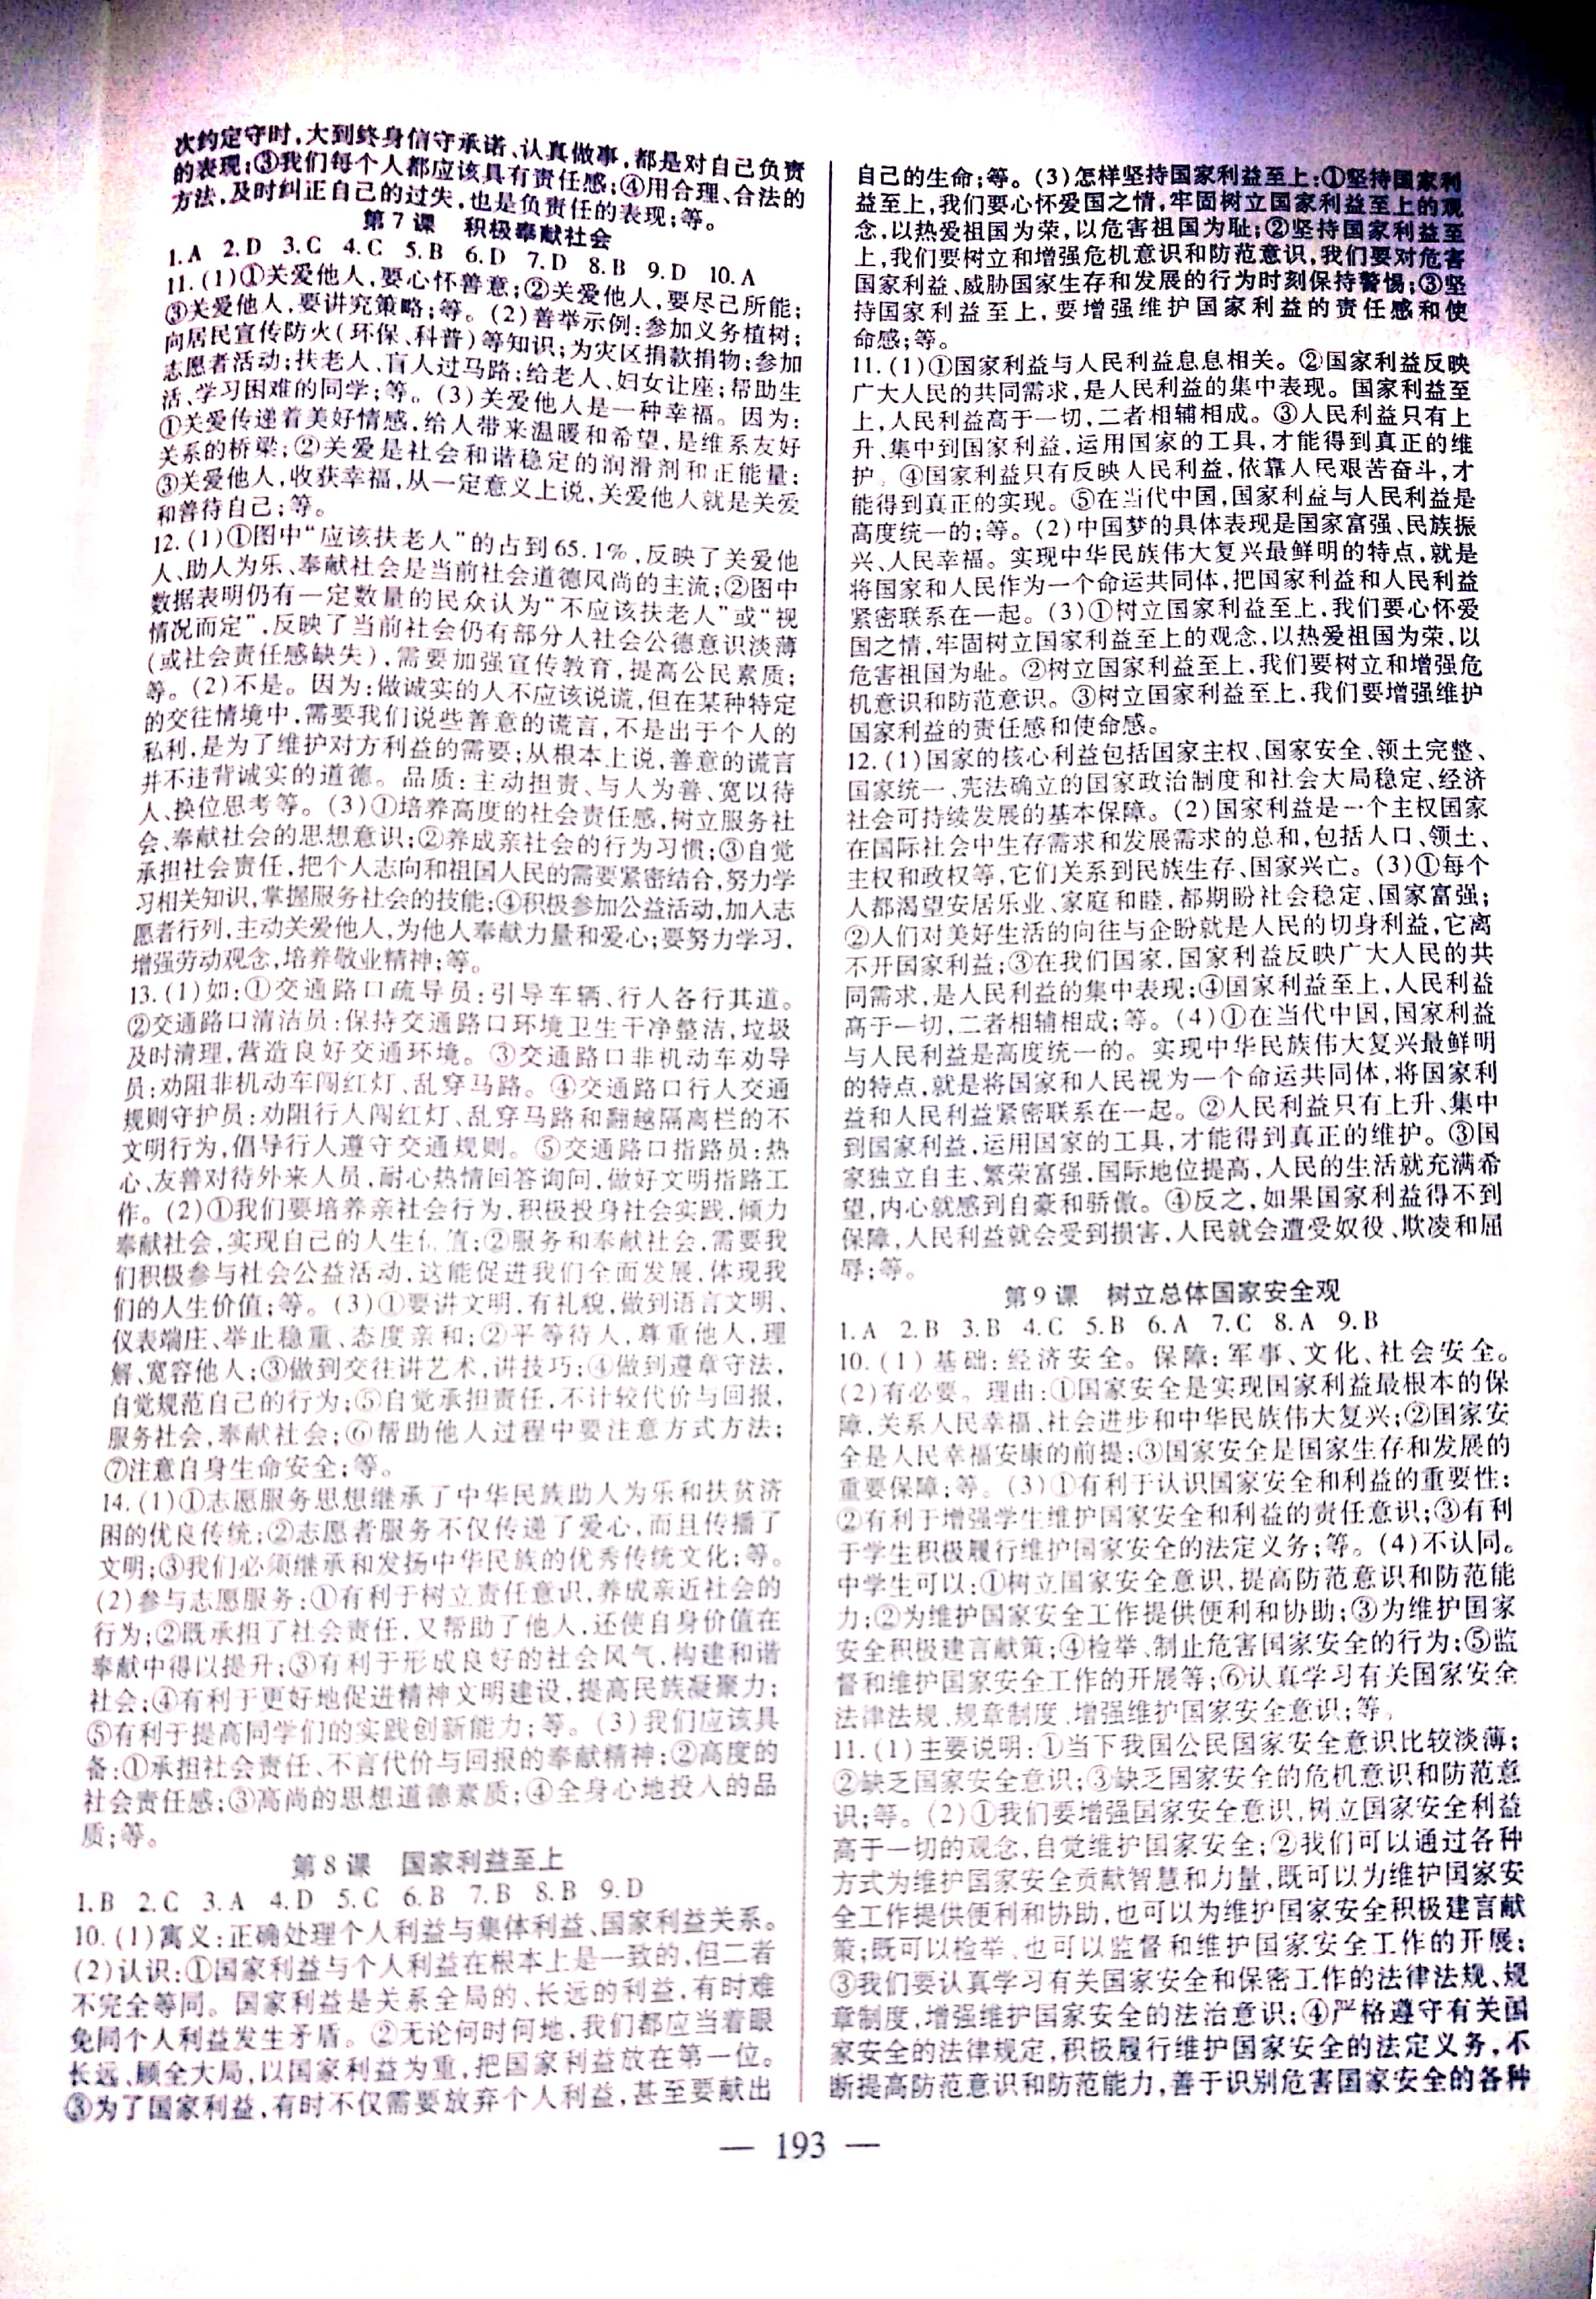 次约定守时,大到终身信守承诺、认真做事,都是对自己负责
的表现;③我们每个人都应该具有责任感;④用合理、合法的
方法,及时纠正自己的过失,也是负责任的表现;等。
第7课 积极奉献社会
1.A 2.D 3.C 4.C 5.B 6.D 7.D 8.B 9.D 10.A
11.(1)①关爱他人,要心怀善意;②关爱他人,要尽己所能;
③关爱他人,要讲究策略;等。(2)善举示例:参加义务植树;
向居民宣传防火(环保、科普)等知识;为灾区捐款捐物;参加
志愿者活动;扶老人、盲人过马路;给老人、妇女让座;帮助生
活、学习困难的同学;等。(3)关爱他人是一种幸福。因为:
①关爱传递着美好情感,给人带来温暖和希望,是维系友好
关系的桥梁;②关爱是社会和谐稳定的润滑剂和正能量;
③关爱他人,收获幸福,从一定意义上说,关爱他人就是关爱
和善待自己;等。
12.(1)①图中“应该扶老人”的占到65.1%,反映了关爱他
人、助人为乐、奉献社会是当前社会道德风尚的主流;②图中
数据表明仍有一定数量的民众认为“不应该扶老人”或“视
情况而定”,反映了当前社会仍有部分人社会公德意识淡薄
(或社会责任感缺失),需要加强宣传教育,提高公民素质;
等。(2)不是。因为:做诚实的人不应该说谎,但在某种特定
的交往情境中,需要我们说些善意的谎言,不是出于个人的
私利,是为了维护对方利益的需要;从根本上说,善意的谎言
并不违背诚实的道德。品质:主动担责、与人为善、宽以待
人、换位思考等。(3)①培养高度的社会责任感,树立服务社
会、奉献社会的思想意识;②养成亲社会的行为习惯;③自觉
承担社会责任,把个人志向和祖国人民的需要紧密结合,努力学
习相关知识,掌握服务社会的技能;④积极参加公益活动,加入志
愿者行列,主动关爱他人,为他人奉献力量和爱心;要努力学习,
增强劳动观念,培养敬业精神;等。
13.(1)如:①交通路口疏导员:引导车辆、行人各行其道。
②交通路口清洁员:保持交通路口环境卫生干净整洁,垃圾
及时清理,营造良好交通环境。③交通路口非机动车劝导
员:劝阻非机动车闯红灯、乱穿马路。④交通路口行人交通
规则守护员:劝阻行人闯红灯、乱穿马路和翻越隔离栏的不
文明行为,倡导行人遵守交通规则。⑤交通路口指路员:热
心、友善对待外来人员,耐心热情回答询问,做好文明指路工
作。(2)①我们要培养亲社会行为,积极投身社会实践,倾力
奉献社会,实现自己的人生价值;②服务和奉献社会,需要我
们积极参与社会公益活动,这能促进我们全面发展,体现我
们的人生价值;等。(3)①要讲文明,有礼貌,做到语言文明、
仪表端庄、举止稳重、态度亲和;②平等待人,尊重他人,理
解、宽容他人;③做到交往讲艺术,讲技巧;④做到遵章守法,
自觉规范自己的行为;⑤自觉承担责任,不计较代价与回报,
服务社会,奉献社会;⑥帮助他人过程中要注意方式方法;
⑦注意自身生命安全;等。
14.(1)①志愿服务思想继承了中华民族助人为乐和扶贫济
困的优良传统;②志愿者服务不仅传递了爱心,而且传播了
文明;③我们必须继承和发扬中华民族的优秀传统文化;等。
(2)参与志愿服务:①有利于树立责任意识,养成亲近社会的
行为;②既承担了社会责任,又帮助了他人,还使自身价值在
奉献中得以提升;③有利于形成良好的社会风气,构建和谐
社会;④有利于更好地促进精神文明建设,提高民族凝聚力;
⑤有利于提高同学们的实践创新能力;等。(3)我们应该具
备:①承担社会责任、不言代价与回报的奉献精神;②高度的
社会责任感;③高尚的思想道德素质;④全身心地投入的品
质;等。
第8课 国家利益至上
1.B 2.C 3.A 4.D 5.C 6.B 7.B 8.B 9.D
10.(1)寓义:正确处理个人利益与集体利益、国家利益关系。
(2)认识:①国家利益与个人利益在根本上是一致的,但二者
不完全等同。国家利益是关系全局的、长远的利益,有时难
免同个人利益发生矛盾。②无论何时何地,我们都应当着眼
长远、顾全大局,以国家利益为重,把国家利益放在第一位。
③为了国家利益,有时不仅需要放弃个人利益,甚至要献出
自己的生命;等。(3)怎样坚持国家利益至上:①坚持国家利
益至上,我们要心怀爱国之情,牢固树立国家利益至上的观
念,以热爱祖国为荣,以危害祖国为耻;②坚持国家利益至
上,我们要树立和增强危机意识和防范意识,我们要对危害
国家利益、威胁国家生存和发展的行为时刻保持警惕;③坚
持国家利益至上,要增强维护国家利益的责任感和使
命感;等。
11.(1)①国家利益与人民利益息息相关。②国家利益反映
广大人民的共同需求,是人民利益的集中表现。国家利益至
上,人民利益高于一切,二者相辅相成。③人民利益只有上
升、集中到国家利益,运用国家的工具,才能得到真正的维
护。④国家利益只有反映人民利益,依靠人民艰苦奋斗,才
能得到真正的实现。⑤在当代中国,国家利益与人民利益是
高度统一的;等。(2)中国梦的具体表现是国家富强、民族振
兴、人民幸福。实现中华民族伟大复兴最鲜明的特点,就是
将国家和人民作为一个命运共同体,把国家利益和人民利益
紧密联系在一起。(3)①树立国家利益至上,我们要心怀爱
国之情,牢固树立国家利益至上的观念,以热爱祖国为荣,以
危害祖国为耻。②树立国家利益至上,我们要树立和增强危
机意识和防范意识。③树立国家利益至上,我们要增强维护
国家利益的责任感和使命感。
12.(1)国家的核心利益包括国家主权、国家安全、领土完整、
国家统一、宪法确立的国家政治制度和社会大局稳定、经济
社会可持续发展的基本保障。(2)国家利益是一个主权国家
在国际社会中生存需求和发展需求的总和,包括人口、领土、
主权和政权等,它们关系到民族生存、国家兴亡。(3)①每个
人都渴望安居乐业、家庭和睦,都期盼社会稳定、国家富强;
②人们对美好生活的向往与企盼就是人民的切身利益,它离
不开国家利益;③在我们国家,国家利益反映广大人民的共
同需求,是人民利益的集中表现;④国家利益至上,人民利益
高于一切,二者相辅相成;等。(4)①在当代中国,国家利益
与人民利益是高度统一的。实现中华民族伟大复兴最鲜明
的特点,就是将国家和人民视为一个命运共同体,将国家利
益和人民利益紧密联系在一起。②人民利益只有上升、集中
到国家利益,运用国家的工具,才能得到真正的维护。③国
家独立自主、繁荣富强,国际地位提高,人民的生活就充满希
望,内心就感到自豪和骄傲。④反之,如果国家利益得不到
保障,人民利益就会受到损害,人民就会遭受奴役、欺凌和屈
辱;等。
第9课 树立总体国家安全观
1.A 2.B 3.B 4.C 5.B 6.A 7.C 8.A 9.B
10.(1)基础:经济安全。保障:军事、文化、社会安全。
(2)有必要。理由:①国家安全是实现国家利益最根本的保
障,关系人民幸福、社会进步和中华民族伟大复兴;②国家安
全是人民幸福安康的前提;③国家安全是国家生存和发展的
重要保障;等。(3)①有利于认识国家安全和利益的重要性;
②有利于增强学生维护国家安全和利益的责任意识;③有利
于学生积极履行维护国家安全的法定义务;等。(4)不认同。
中学生可以:①树立国家安全意识,提高防范意识和防范能
力;②为维护国家安全工作提供便利和协助;③为维护国家
安全积极建言献策;④检举、制止危害国家安全的行为;⑤监
督和维护国家安全工作的开展等;⑥认真学习有关国家安全
法律法规、规章制度,增强维护国家安全意识;等。
11.(1)主要说明:①当下我国公民国家安全意识比较淡薄;
②缺乏国家安全意识;③缺乏国家安全的危机意识和防范意
识;等。(2)①我们要增强国家安全意识,树立国家安全利益
高于一切的观念,自觉维护国家安全;②我们可以通过各种
方式为维护国家安全贡献智慧和力量,既可以为维护国家安
全工作提供便利和协助,也可以为维护国家安全积极建言献
策;既可以检举,也可以监督和维护国家安全工作的开展;
③我们要认真学习有关国家安全和保密工作的法律法规、规
章制度,增强维护国家安全的法治意识;④严格遵守有关国
家安全的法律规定,积极履行维护国家安全的法定义务,不
断提高防范意识和防范能力,善于识别危害国家安全的各种
— 193 —